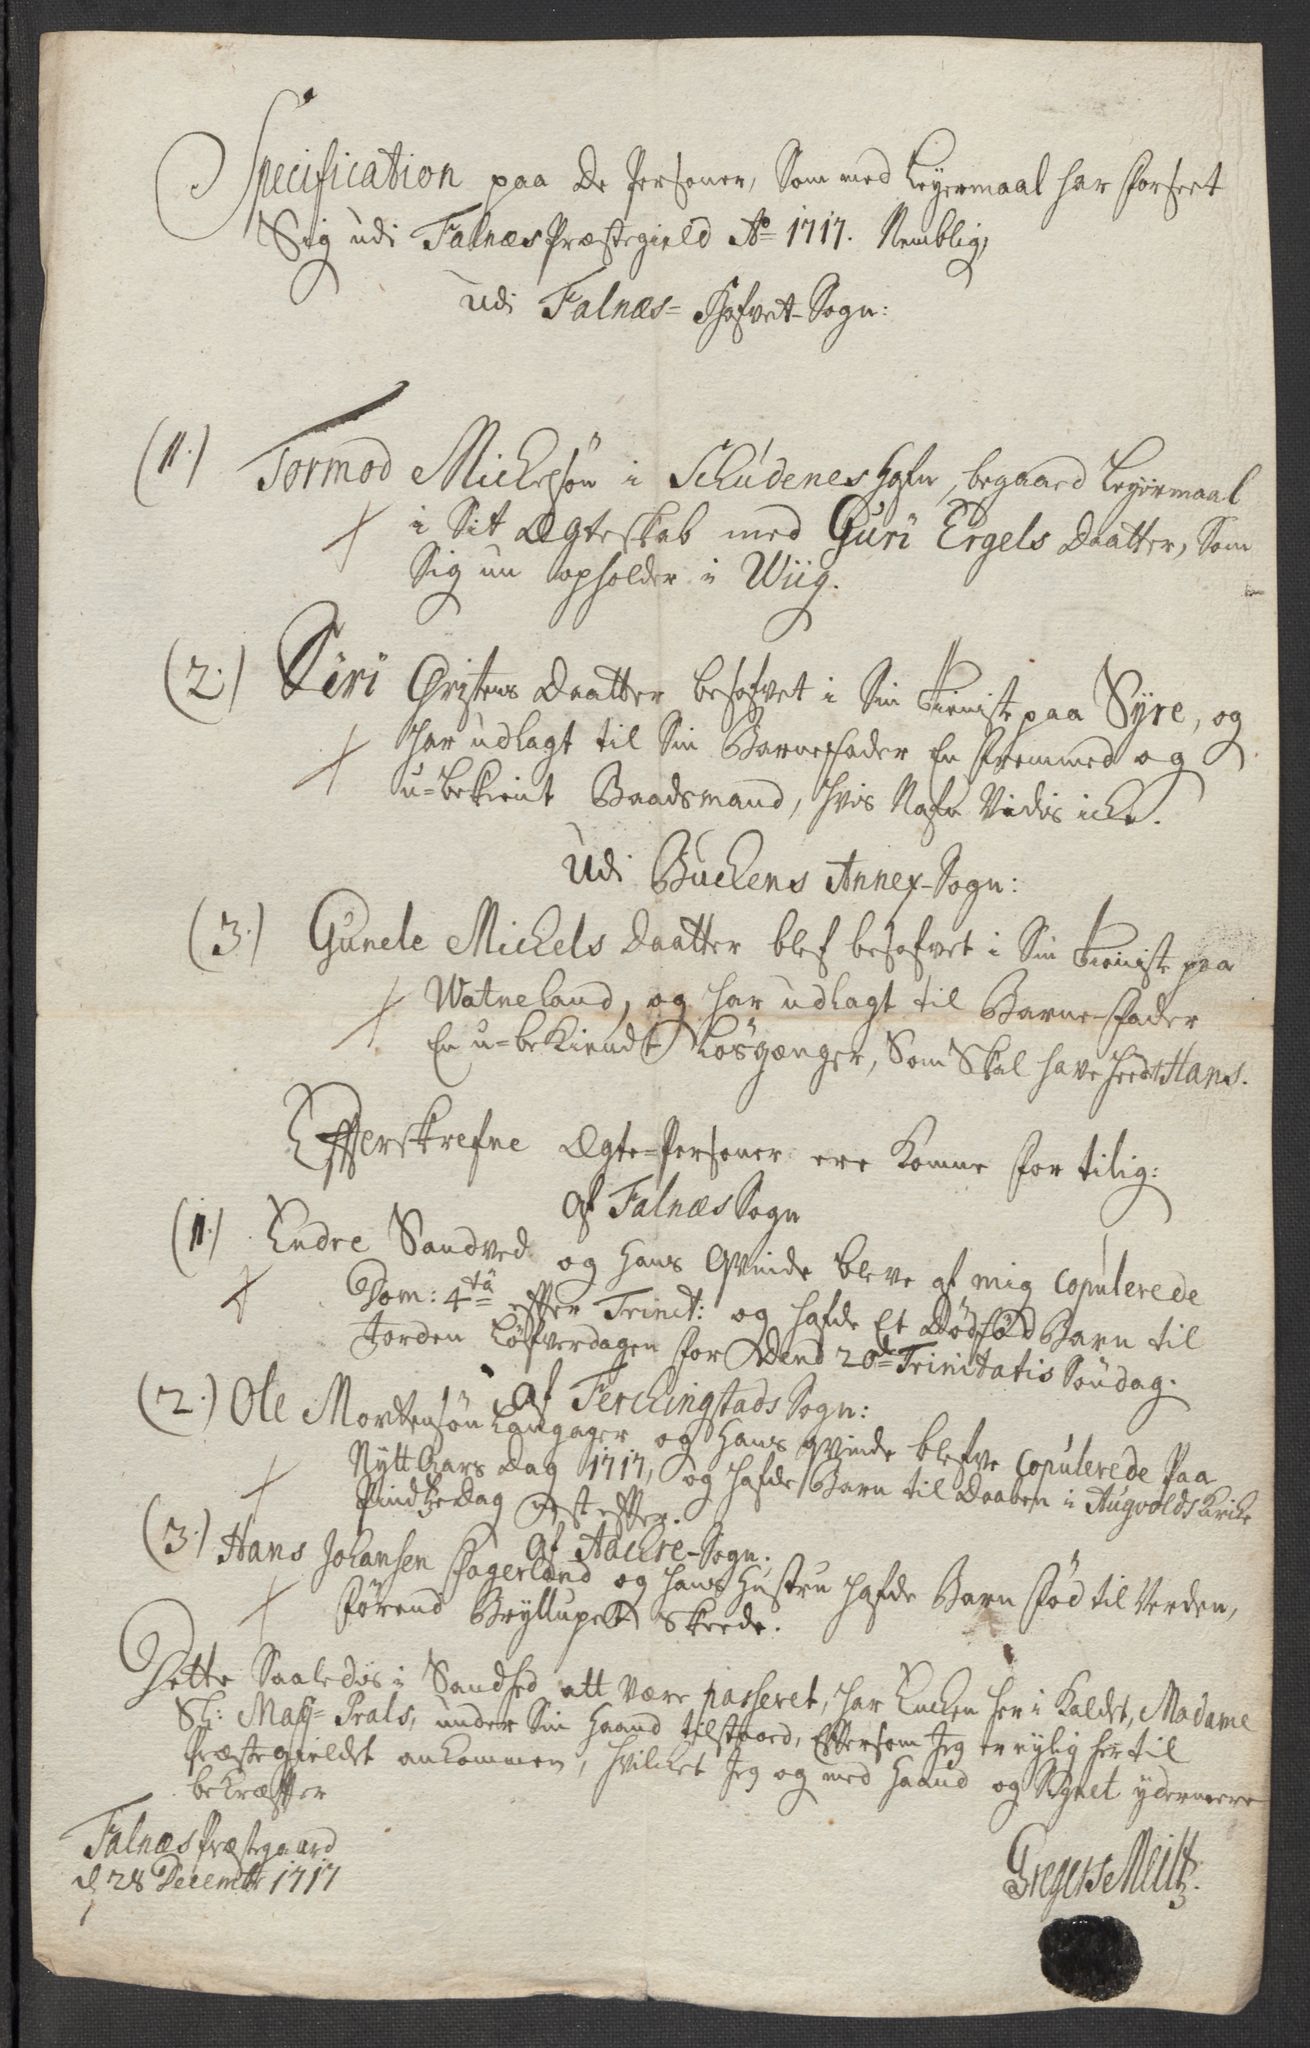 Specification paa de Personer, Som med Leyermaal har forseet
Sig udi Falnæs Præstegield Aº 1717. Nemblig,
udi Falnæs= Hofvet-Sogn:
(1.) Tormod Michelsön i Schudenes Hafn, begaaed Leyermaal
i Sit Ægteskab med Guri Ergels Daatter, Som
Sig nu opholder i Wiig.
(2.) Siri Christens Daatter besofvet i Sin Tieniste paa Syre, og
har udlagt til Sin Barnefader En fremmed og
u=bekient Baadsmand, hvis Nafn Vides icke.
Udi Buckens Annex-Sogn:
(3.) Gunele Michels Daatter blef besofvet i Sin Tieniste paa
Watneland, og har udlagt til Barne-fader
En u=bekiendt Løsgænger, Som Skal have heedt Hans.
Efterskrefne Ægte=Personer ere komne for tilig:
Af Falnæs Sogn
(1.) Endre Sandved og Hans Qvinde bleve af mig Copulerede
Dom: 4ta effter Trinit: og hafde Et dødfød Barn til
Jorden Løfverdagen for Dend 20de Trinitatis Söndag.
Af Ferckingstads Sogn:
(2.) Ole Mortensön Langager og Hans qvinde blefve Copulerede Paa
Nytt Aars Dag 1717, og hafde Barn til Daaben i Augvolds Kircke
Pindtze Dag nest effter.
Af Aackre-Sogn.
(3.) Hans Johansen Fagerland og hans Hustru hafde Barn fød til Verden,
förend Bryllupet Skeede.
Dette Saaledes i Sandhed att være passeret, har Encken her i Kaldet, Madame
Sl: Mag= Prals, under Sin Haand tilstaaed, Eftersom Jeg er nylig her til
Præstegieldet ankommen, hvilcket Jeg og med Haand og Signet ydermeere
bekræffter
Falnæs Præstegaard
d 28 Decembr 1717
Gregers Meltz.